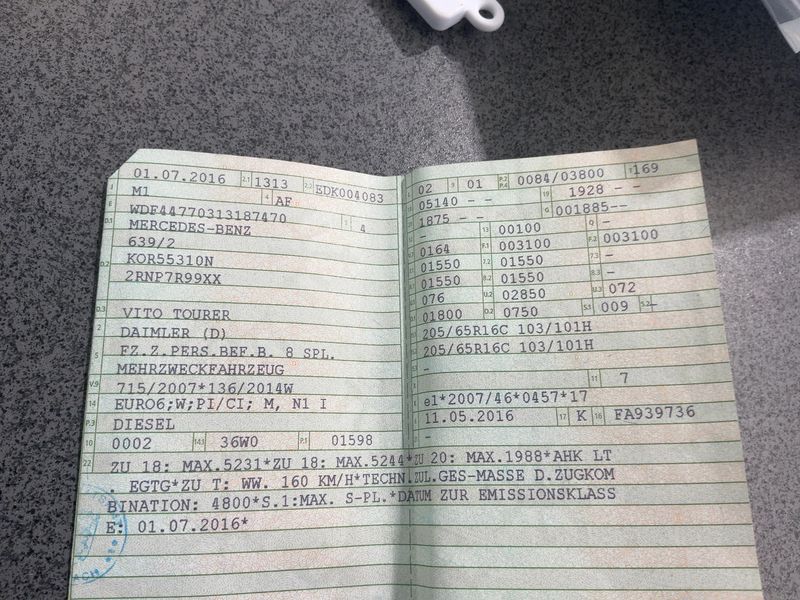 01.07.2016 2.1 1313 2.2 EDK004083
M1 4 AF
WDF44770313187470 3 4
MERCEDES-BENZ
639/2
KOR55310N
2RNP7R99XX
VITO TOURER
DAIMLER (D)
FZ.Z.PERS.BEF.B. 8 SPL.
MEHRZWECKFAHRZEUG
715/2007*136/2014W
EURO6;W;PI/CI; M, N1 I
DIESEL
10 0002 14.1 36W0 P.1 01598
02 9 01 P.2 P.4 0084/03800 T 169
05140 - - 19 1928 - -
1875 - - G 001885--
- 13 00100 Q -
0164 F.1 003100 F.2 003100
01550 7.2 01550 7.3 -
01550 8.2 01550 8.3 -
076 U.2 02850 U.3 072
01800 O.2 0750 S.1 009 S.2 -
205/65R16C 103/101H
205/65R16C 103/101H
-
11 7
e1*2007/46*0457*17
11.05.2016 17 K 16 FA939736
-
22 ZU 18: MAX.5231*ZU 18: MAX.5244*ZU 20: MAX.1988*AHK LT
. EGTG*ZU T: WW. 160 KM/H*TECHN.ZUL.GES-MASSE D.ZUGKOM
BINATION: 4800*S.1:MAX. S-PL.*DATUM ZUR EMISSIONSKLASS
E: 01.07.2016*